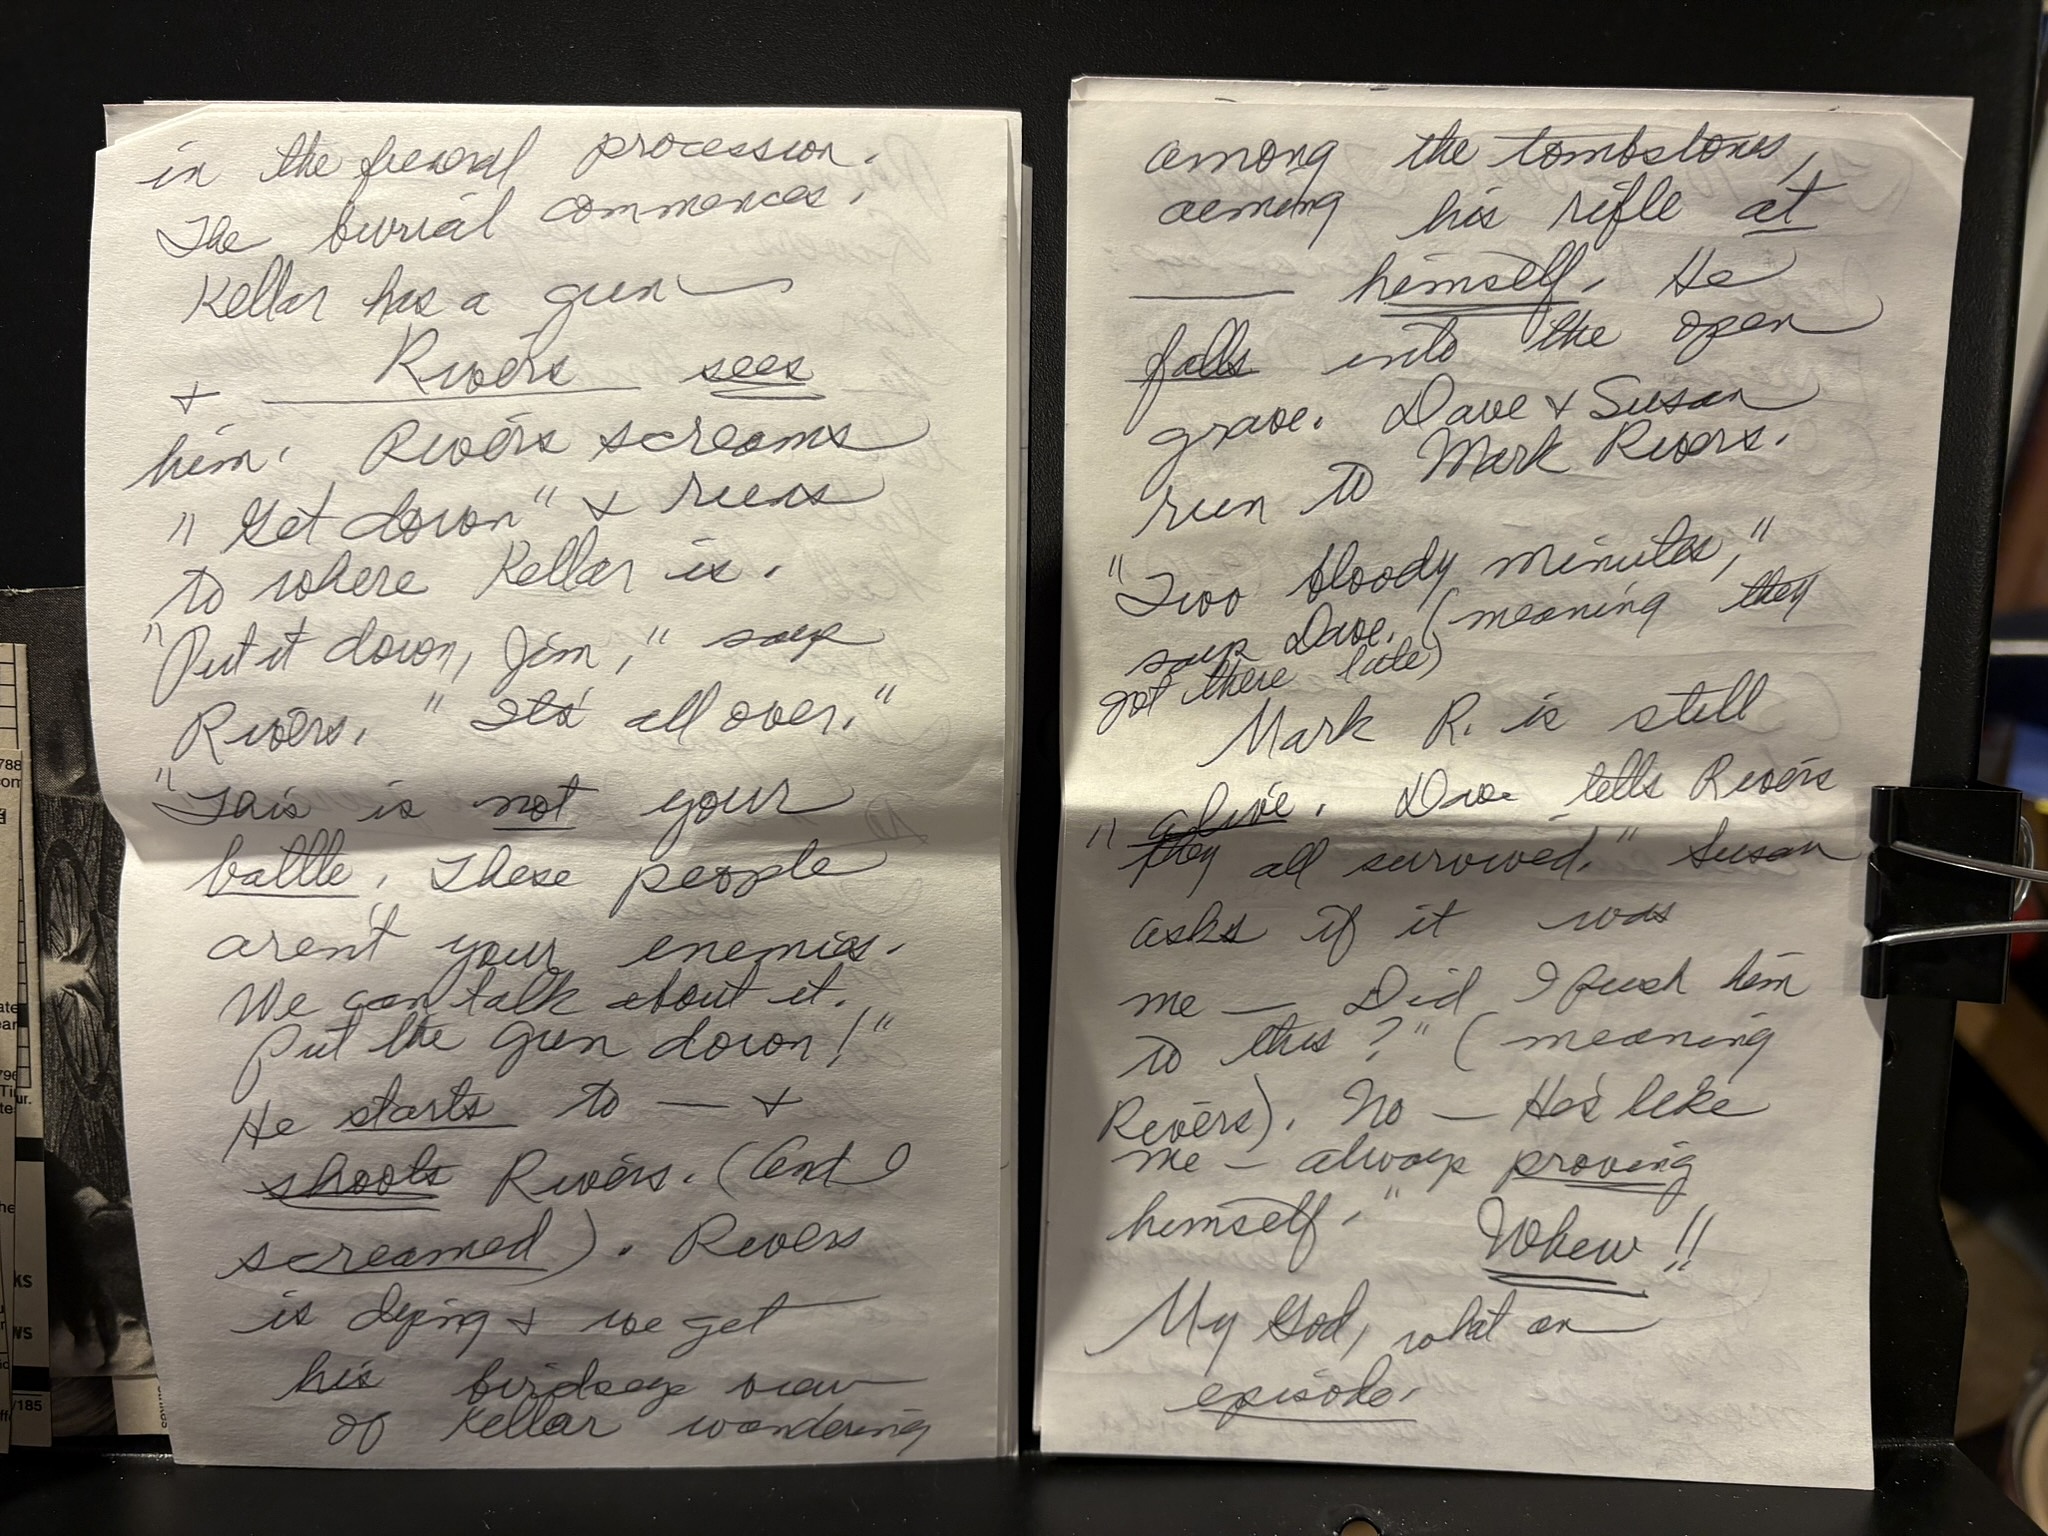 in the funeral procession.
The burial commences.
Kellar has a gun
+ Rivers sees
him. Rivers screams
"Get down" + runs
to where Kellar is.
"Put it down, Jim," says
Rivers. "It's all over."
"This is not your
battle. These people
aren't your enemies.
We can talk about it.
Put the gun down!"
He starts to — +
shoots Rivers. (and I
screamed). Rivers
is dying + we get
his birdseye view
of Kellar wandering
among the tombstones,
aiming his rifle at
himself. He
falls into the open
grave. Dave + Susan
run to Mark Rivers.
"Two bloody minutes,"
says Dave. (meaning they
got there late)
Mark R. is still
alive. Dave tells Rivers
"they all survived." Susan
asks if it was
me — Did I push him
to this?" (meaning
Rivers). No — He's like
me — always proving
himself." Whew!!
My God, what an
episode.
788
con
ate
ear
796
Ti
ur.
te
he
KS
WS
/185